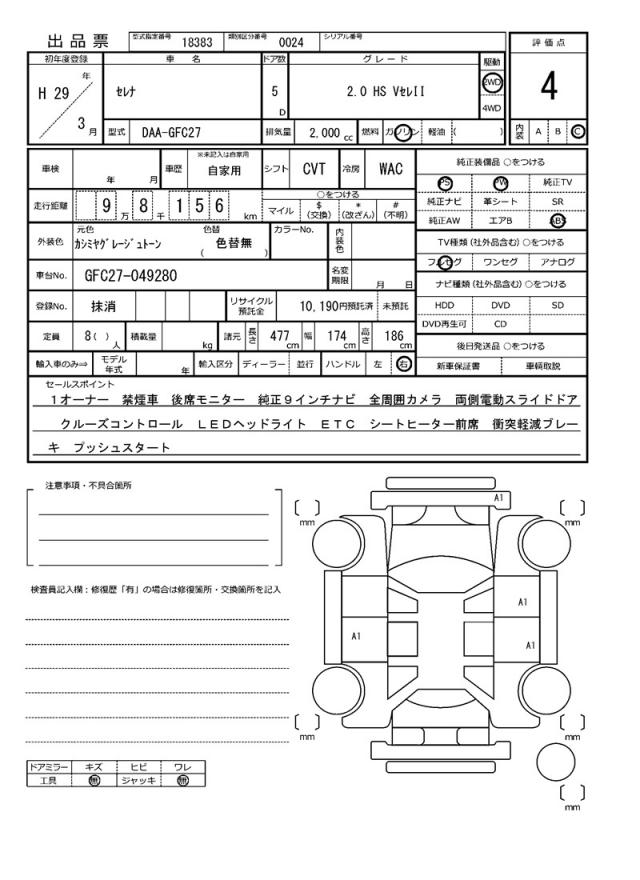 出品票 型式指定番号 18383 類別区分番号 0024 シリアル番号
評価点
初年度登録 車名 ドア数 グレード 駆動
H 29 年 3 月 セレナ 5 D 2.0 HS VセレII 2WD 4WD 4
型式 DAA-GFC27 排気量 2,000 cc 燃料 ガソリン 軽油 ( ) 内装 A B C
車検 年 月 車歴 ※未記入は自家用 自家用 シフト CVT 冷房 WAC
純正装備品 ○をつける
PS PW 純正TV
走行距離 9 万 8 千 1 5 6 km
○をつける
マイル $ (交換) * (改ざん) # (不明)
純正ナビ 革シート SR
純正AW エアB ABS
外装色 元色 カシミヤグレージュトーン 色替 ( 色替無 ) カラーNo. 内装色
TV種類 (社外品含む) ○をつける
フルセグ ワンセグ アナログ
車台No. GFC27-049280 名変期限 月 日
ナビ種類 (社外品含む) ○をつける
登録No. 抹消 リサイクル預託金 10,190円預託済 未預託
HDD DVD SD
DVD再生可 CD
定員 8( ) 人 積載量 kg 諸元 長さ 477 cm 幅 174 cm 高さ 186 cm
後日発送品 ○をつける
輸入車のみ⇒ モデル年式 年 輸入区分 ディーラー 並行 ハンドル 左 右
新車保証書 車輌取説
セールスポイント
1オーナー 禁煙車 後席モニター 純正9インチナビ 全周囲カメラ 両側電動スライドドア
クルーズコントロール LEDヘッドライト ETC シートヒーター前席 衝突軽減ブレー
キ プッシュスタート
注意事項・不具合箇所
検査員記入欄：修復歴「有」の場合は修復箇所・交換箇所を記入
A1
mm mm
A1
A1 A1
mm mm
mm
ドアミラー キズ ヒビ ワレ
工具 無 ジャッキ 無